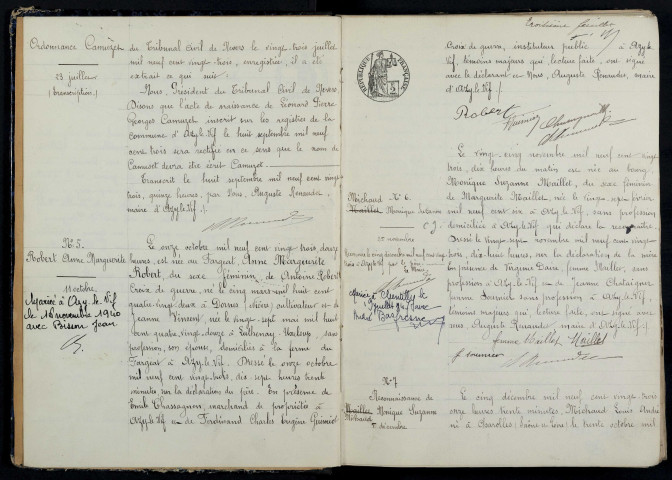 Ordonnance Camuzet
23 juillet
(transcription)
du Tribunal Civil de Nevers le vingt-trois juillet
mil neuf cent vingt-trois, enregistrée, il a été
extrait ce qui suit :
Nous, Président du Tribunal Civil de Nevers
Disons que l'acte de naissance de Léonard Pierre
Georges Camuzet inscrit sur les registres de la
Commune d'Azy-le-Vif le huit septembre mil neuf
cent trois sera rectifié en ce sens que le nom de
Camuset devra être écrit Camuzet.
Transcrit le huit septembre mil neuf cent vingt-
trois, quinze heures, par Nous, Auguste Renaudet,
maire d'Azy-le-Vif ./.
N° 5.
Robert Anne Marguerite
11 octobre.
Mariée à Azy-le-Vif
le 16 novembre 1940
avec Bisson Jean
Le onze octobre mil neuf cent vingt-trois, douze
heures, est née au Fargeat Anne Marguerite
Robert, du sexe féminin, de Antoine Robert
Croix de guerre, né le cinq mars mil huit cent
quatre-vingt-douze à Dornes (Nièvre) cultivateur et de
Jeanne Vincent, née le vingt-sept mai mil huit
cent quatre-vingt-douze à sans
profession, son épouse, domiciliés à la ferme du
Fargeat à Azy-le-Vif. Dressé le onze octobre
mil neuf cent vingt-trois, dix-sept heures trente
minutes sur la déclaration du père. En présence de
Emile Chassagnon, marchand de propriétés à
Azy-le-Vif et de Ferdinand Charles Eugène
Troisième feuillet
RÉPUBLIQUE FRANÇAISE
Croix de guerre, instituteur public à Azy-le-
Vif, témoins majeurs qui, lecture faite, ont signé
avec le déclarant et Nous, Auguste Renaudet, maire
d'Azy-le-Vif ./.
Robert
Michaud N° 6.
Maillet Monique Suzanne
25 novembre
Le vingt-cinq novembre mil neuf cent vingt-
trois, dix heures du matin est née au bourg
Monique Suzanne Maillet, du sexe féminin
de Marguerite Maillet, née le vingt-sept février
mil neuf cent six à Azy-le-Vif, sans profession
domiciliée à Azy-le-Vif qui déclare la reconnaître.
Dressé le vingt-sept novembre mil neuf cent vingt-
trois, dix-huit heures, sur la déclaration de la mère
en présence de Virginie femme Maillet, sans
profession à Azy-le-Vif et de Jeanne
femme sans profession à Azy-le-Vif
témoins majeurs qui, lecture faite, ont signé avec
nous Auguste Renaudet, maire d'Azy-le-Vif ./.
femme Maillet Maillet
N° 7
Reconnaissance de
Maillet Monique Suzanne
Michaud
5 décembre
Le cinq décembre mil neuf cent vingt-trois
onze heures trente minutes, Michaud Louis André
né à (Saône-et-Loire) le trente octobre mil